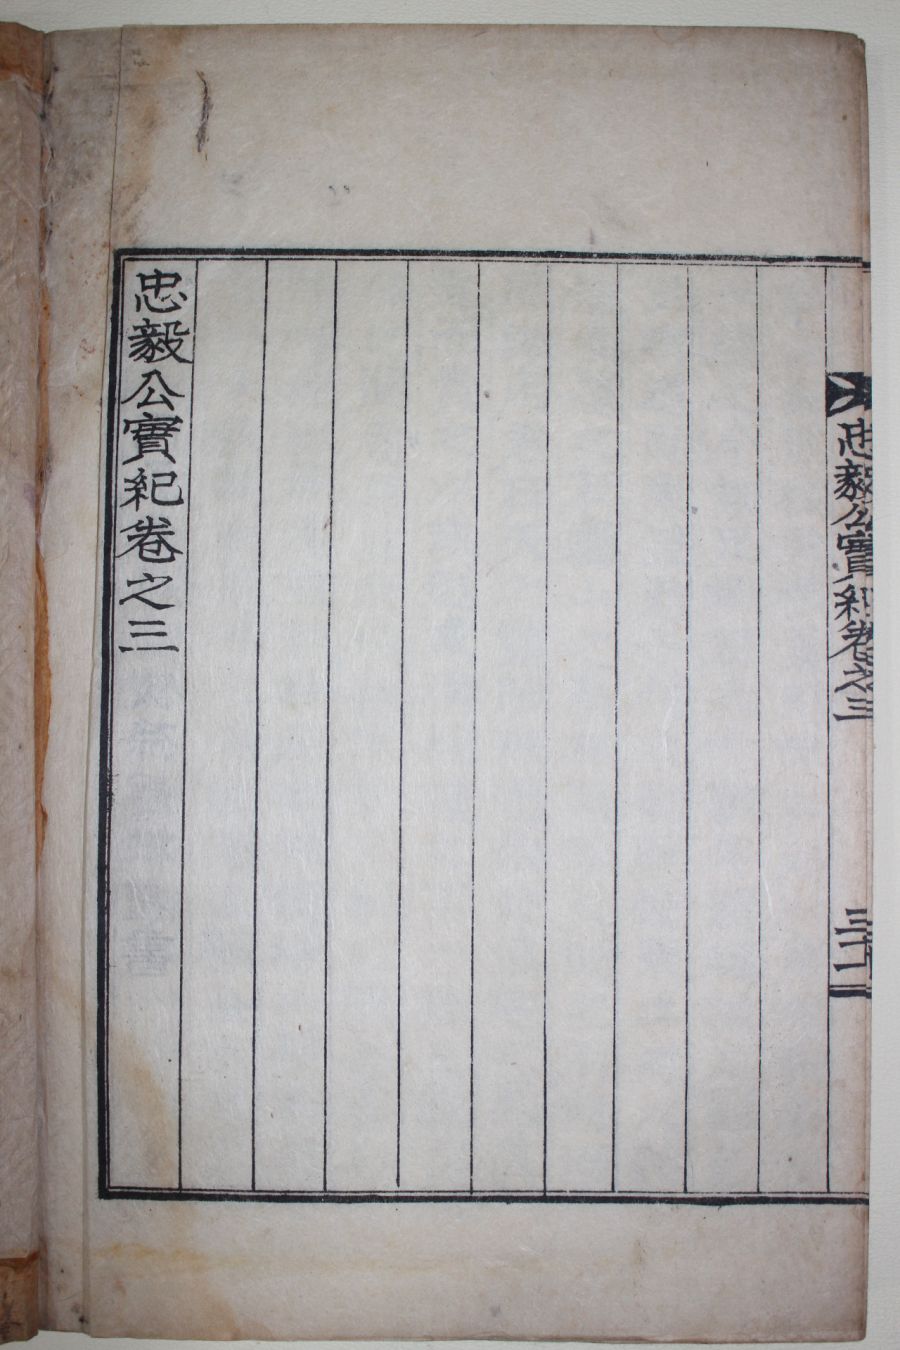 忠毅公實紀卷之三
三十一
忠毅公實紀卷之三